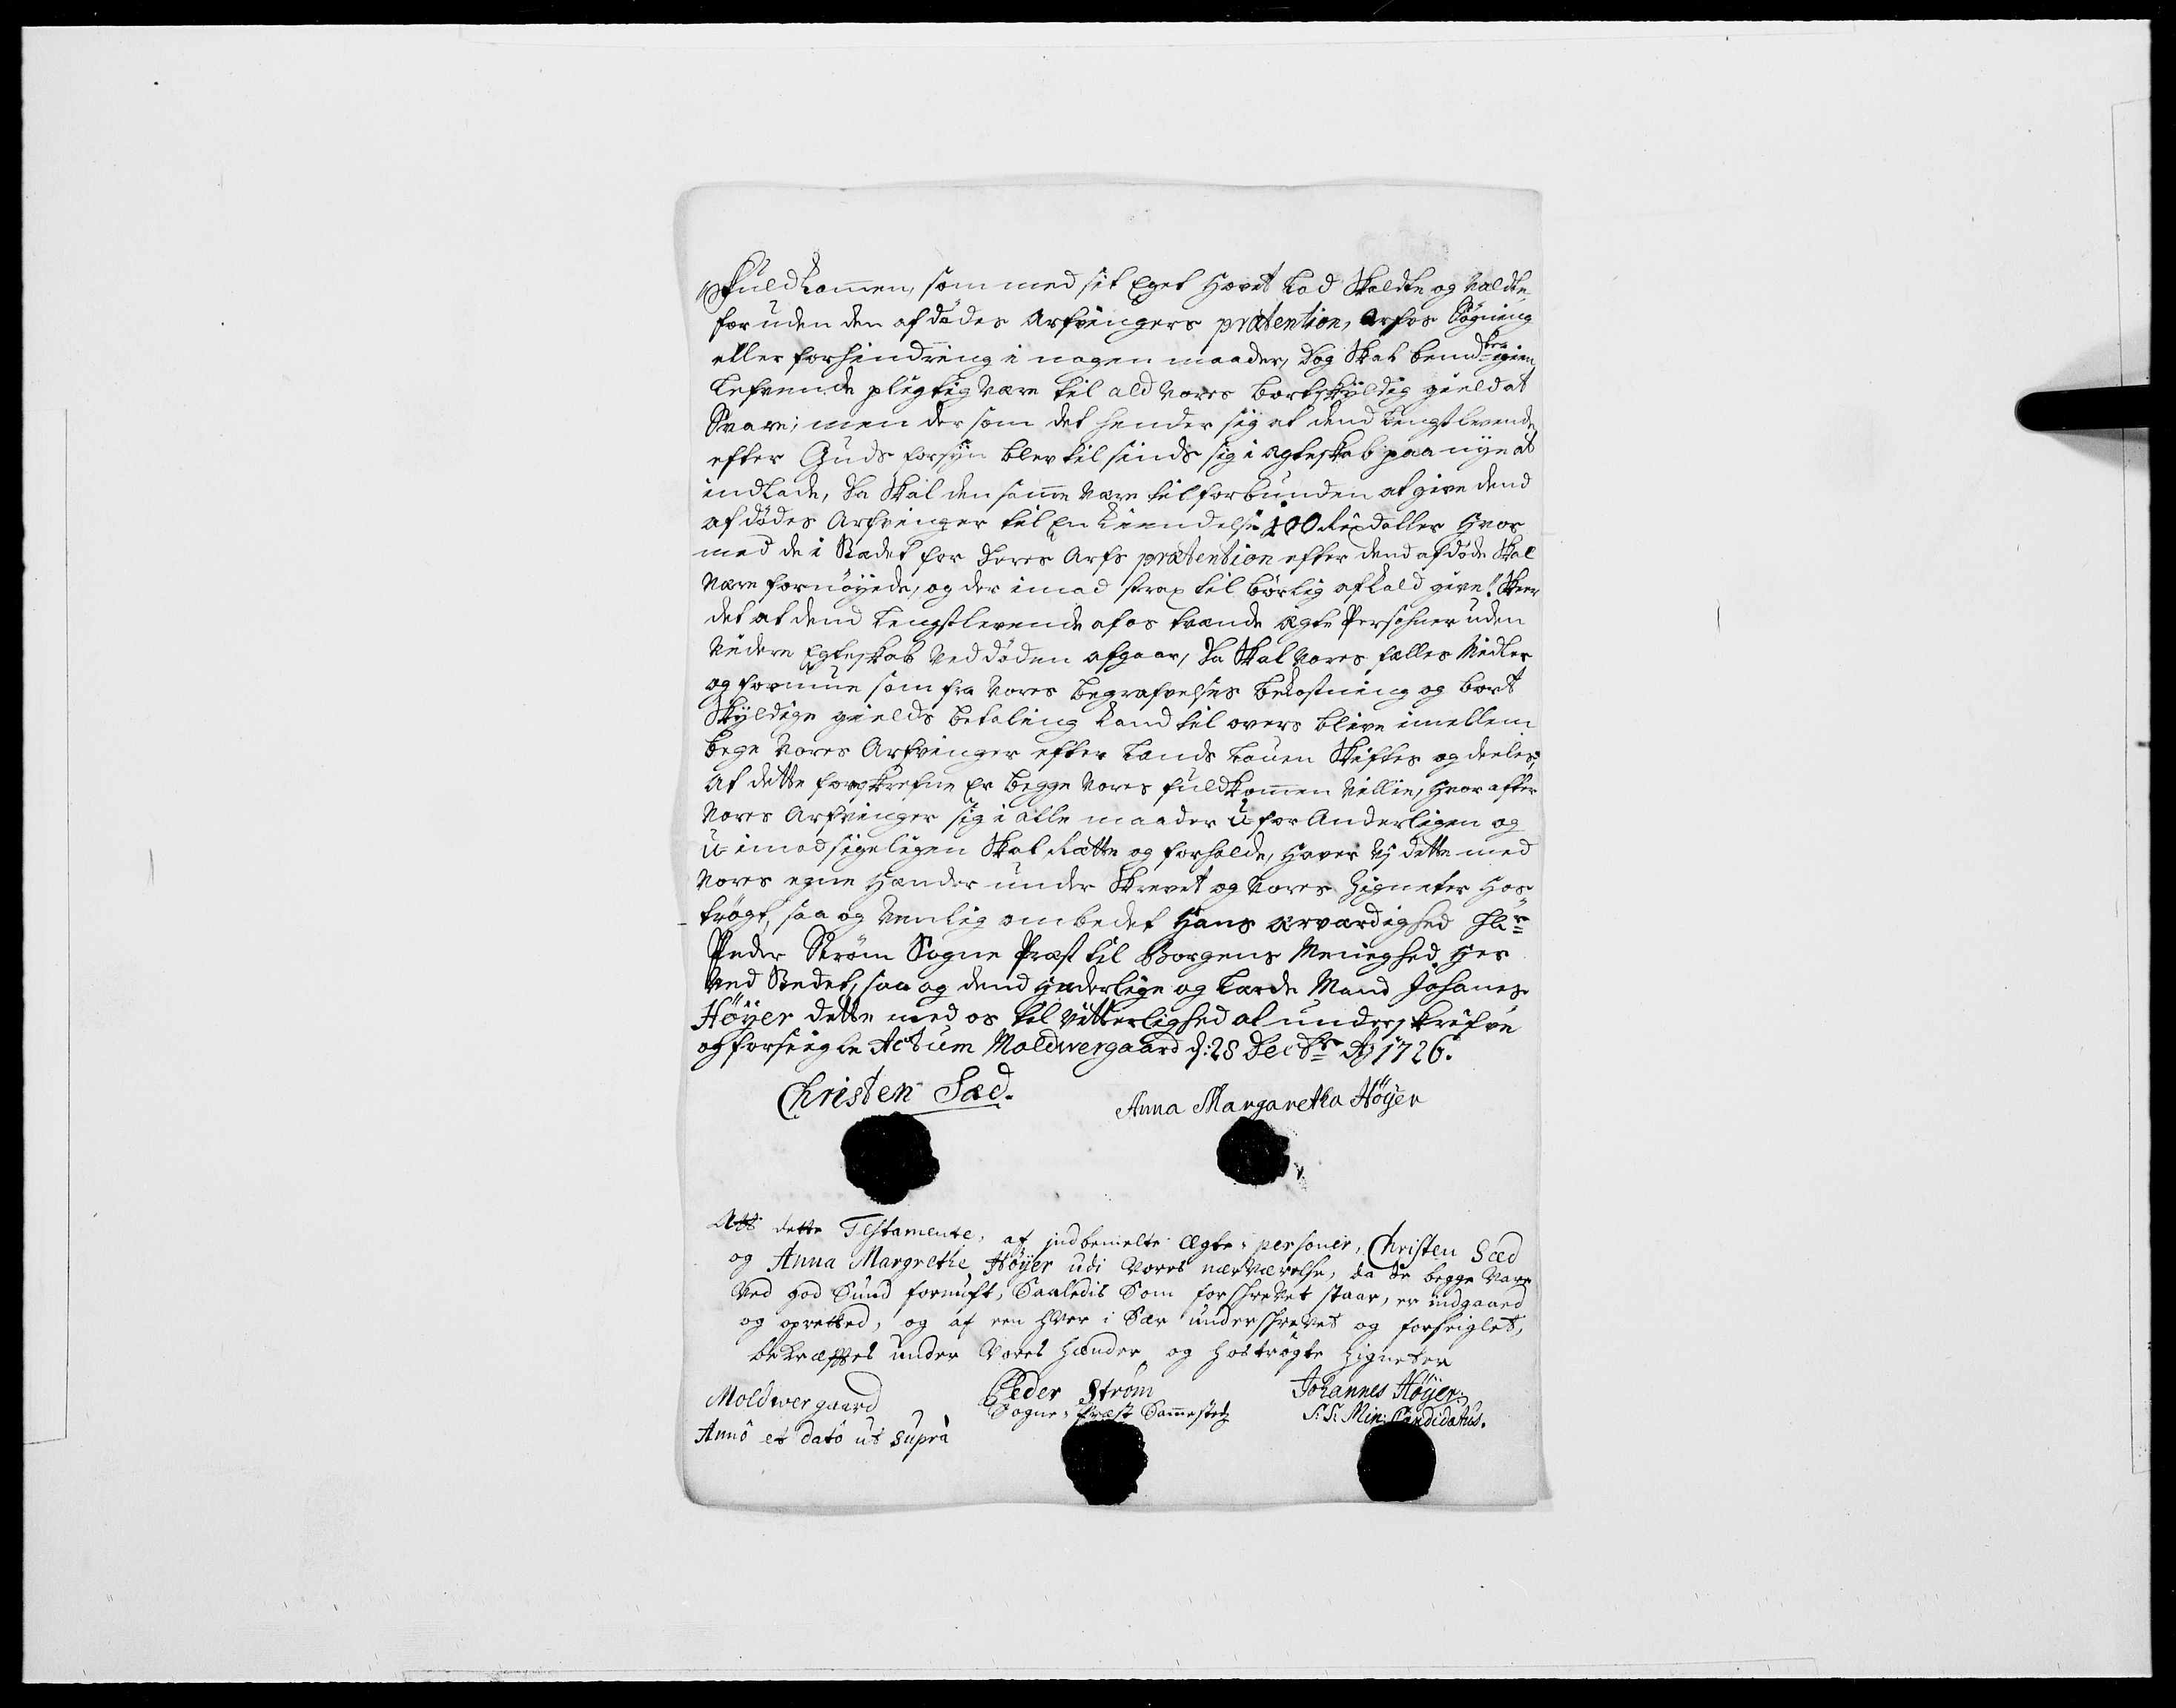 Fuldkommen, som med sit Eget Hvert lod Skaldte og Valdte
foruden den afdødes Arfvingers prætention, Arfos Søgning
eller forhindring i nogen maader, dog skal bemdte igien
Lefvende pligtig være til ald vores bortskyldig gield at
Svare; men der som det hender sig at dend Lengstlevende
efter Guds forsyn blev til sinds sig i Ægteskab paa nye at
indlade, da skal den samme være til forbunden at give dend
afdødes Arfvinger til En Kiendelse 100 Rixdaller hvor
med de i Stædet for deres Arfs prætention efter dend afdøde skal
være fornøyede, og der imod strax til børlig afkald give! Skeer
det at dend Lengstlevende af os tvende ægte Persohner uden
videre Egteskab ved døden afgaar, da skal vores fælles Midler
og formue som fra vores begrafvelses bekostning og bort
skyldige gields betaling kand til overs blive imellem
bege vores Arfvinger efter Lands Lauen skiftes og deeles,
At dette forskrefne er begge vores fuldkommen villie, hvor after
vores Arfvinger sig i alle maader uforanderligen og
u-imodsigeligen skal Rætte og forholde, haver vj dette med
vores egne hænder under skrevet og vores Zigneter hos
trøgt, saa og venlig ombedet Hans ærværdighed Hr
Peder Strøm Sogne Præst til Borgens Menighed her
ved Stedet, saa og dend hæderlige og Lærde Mand Johanes
Höyer dette med os til vitterlighed at underskrifve
og forseigle Actum Moldwergaard d: 28 Decbr Ao 1726.
Christen Sæd.
Anna Margaretha Höyer
Att dette Testamente, af indbemelte Ægte-personer, Christen Sæd
og Anna Margrethe Höyer udi vores nærværelse, da de begge vare
ved god Sund fornuft, Saaledis Som forskrevet staar, er indgaaed
og oprætted, og af een hver i Sær underskrevet og forseiglet,
bekræfftes under vores hænder og hostrøgte Zigneter
Moldwergaard
Anno et dato ut supra
Peder Strøm
Sogne-Præst Sammestedz
Johannes Höyer.
S: S: Min: Candidatus.